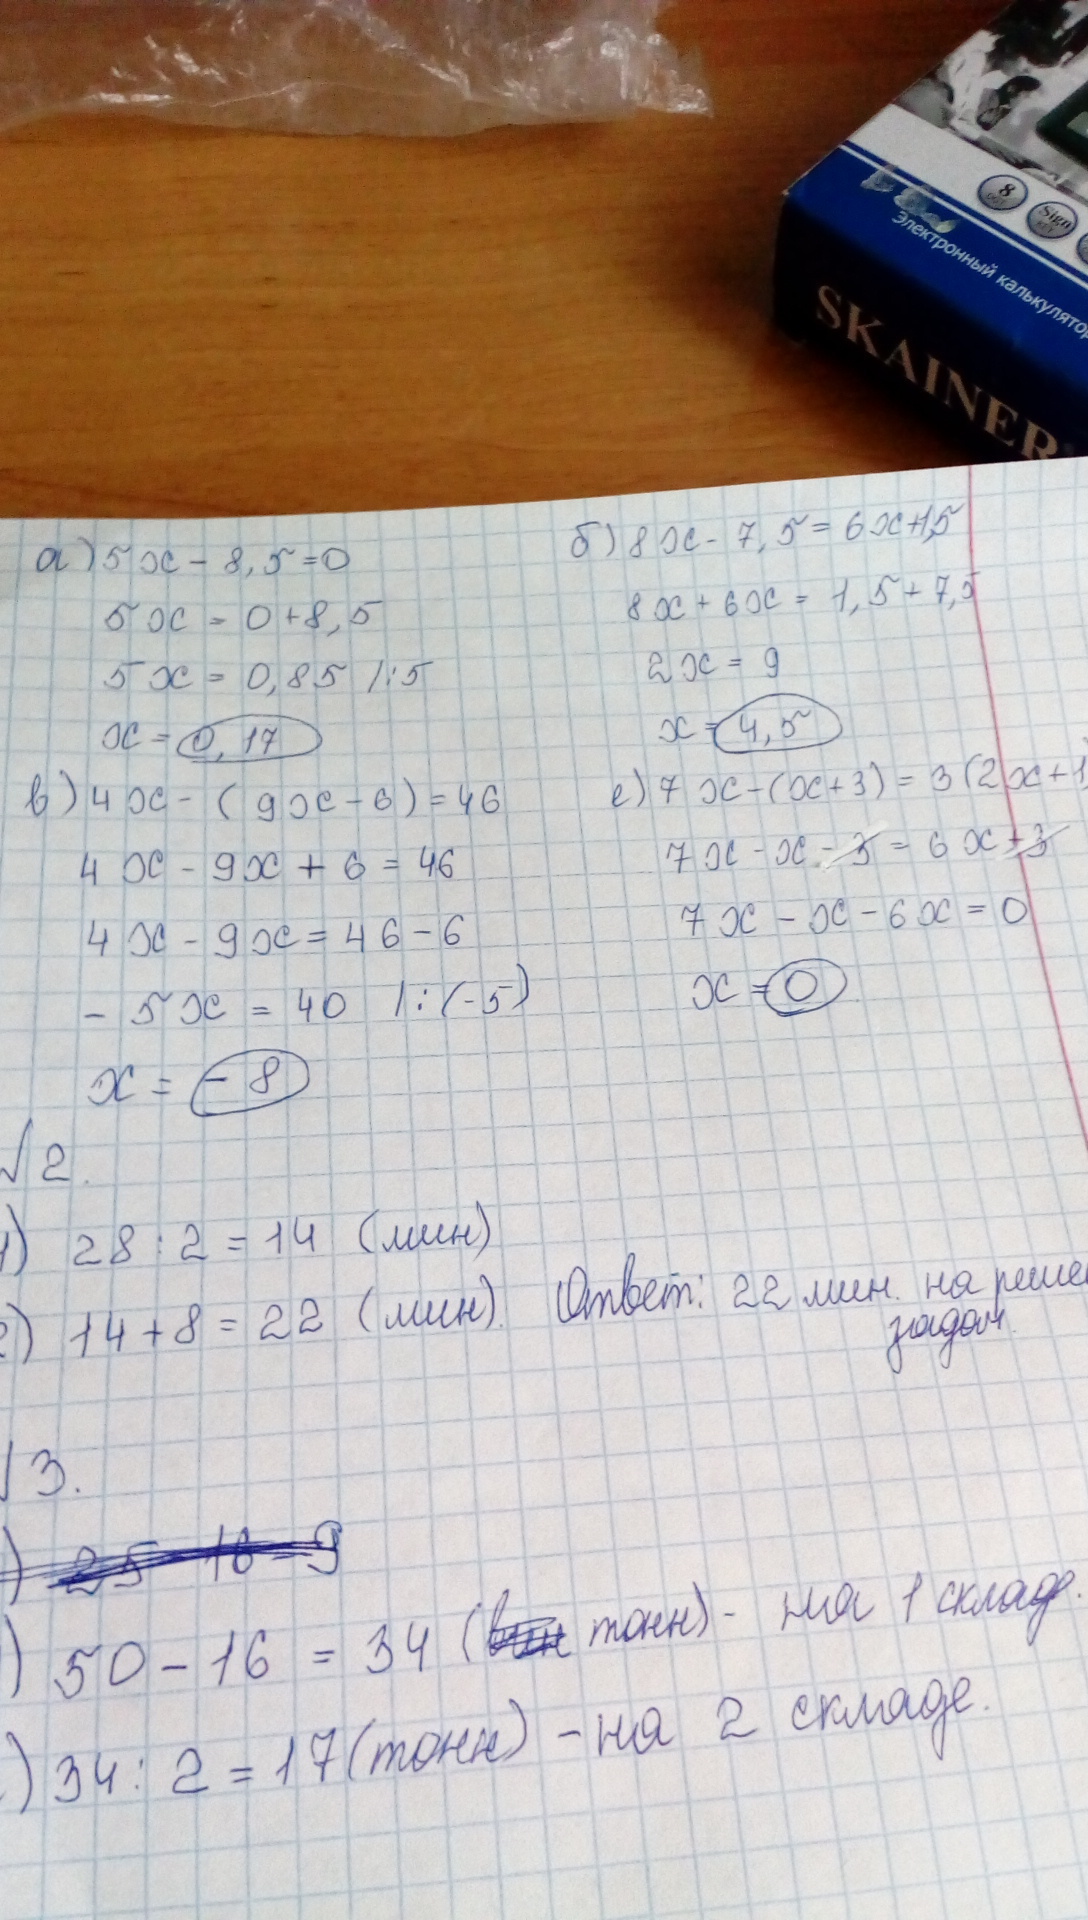 8
Sign
Электронный калькулятор
SKAINER
а) 5x - 8,5 = 0
5x = 0 + 8,5
5x = 0,85 |:5
x = 0,17
б) 8x - 7,5 = 6x + 1,5
8x + 6x = 1,5 + 7,5
2x = 9
x = 4,5
в) 4x - (9x - 6) = 46
4x - 9x + 6 = 46
4x - 9x = 46 - 6
- 5x = 40 |:(-5)
x = - 8
е) 7x - (x + 3) = 3(2x + 1)
7x - x - 3 = 6x + 3
7x - x - 6x = 0
x = 0
√2.
1) 28 : 2 = 14 (мин)
2) 14 + 8 = 22 (мин). Ответ: 22 мин. на решен
задач.
√3.
) 25 16 = 9
1) 50 - 16 = 34 (тонн) - на 1 складе.
2) 34 : 2 = 17 (тонн) - на 2 складе.